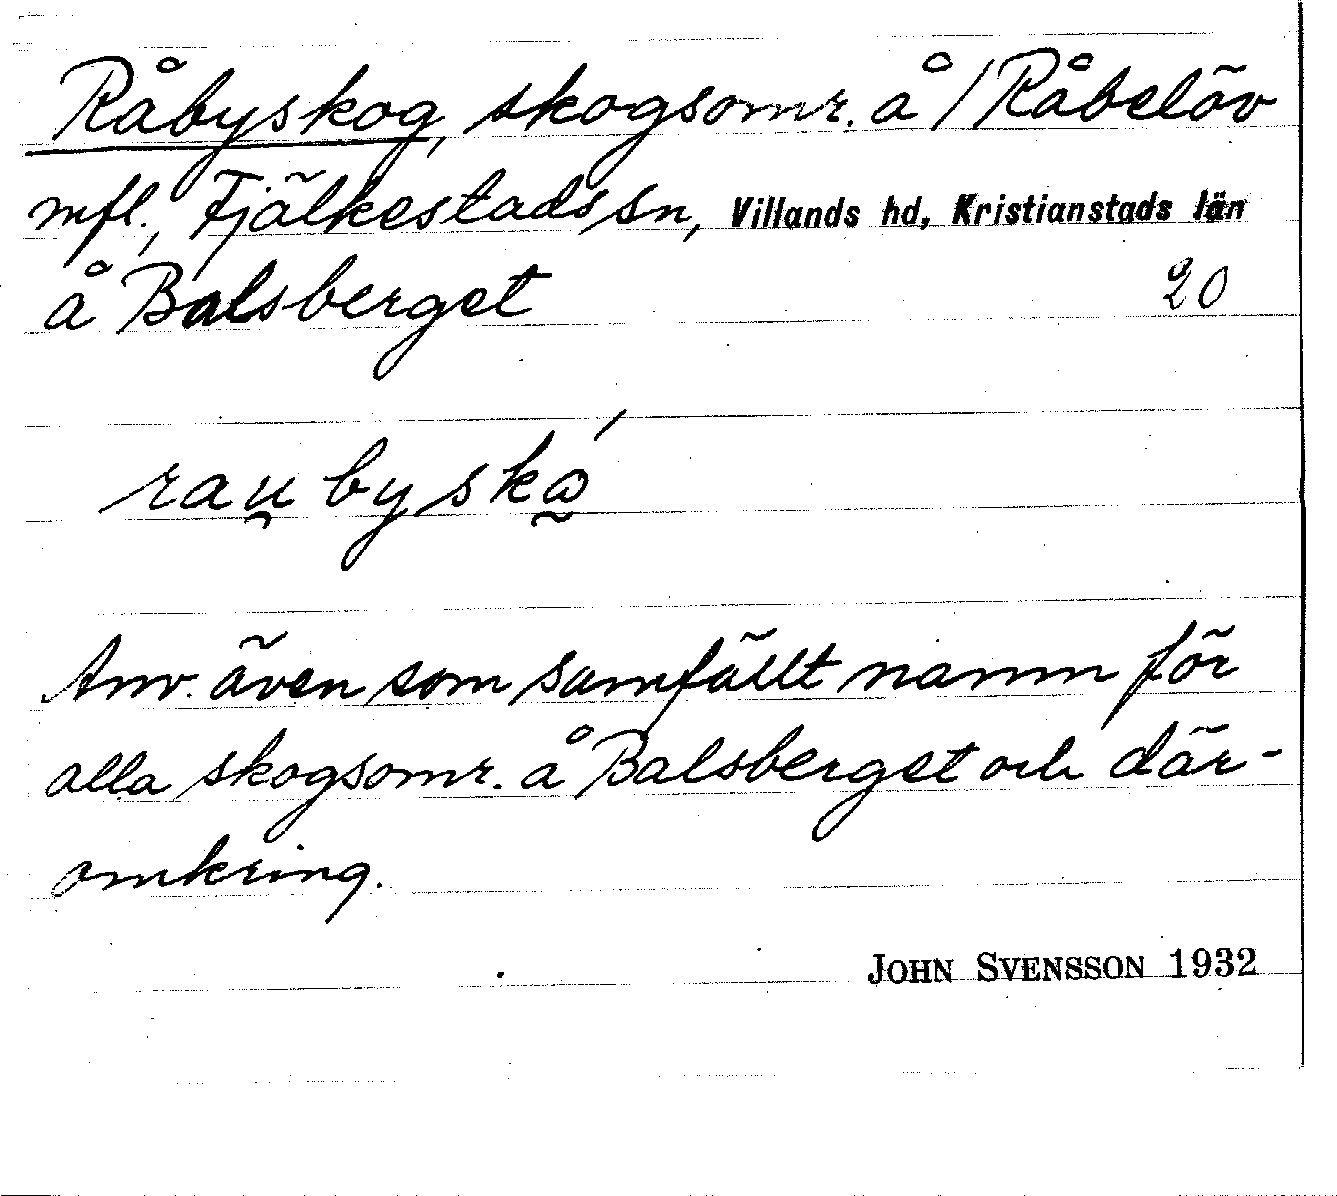 Råbyskog, skogsomr. å / Råbelöv
mfl., Fjälkestads sn, Villands hd, Kristianstads län
å Balsberget 20
rau̯byskɷ̰́
Anv. även som samfällt namn för
alla skogsomr. å Balsberget och där-
omkring.
JOHN SVENSSON 1932